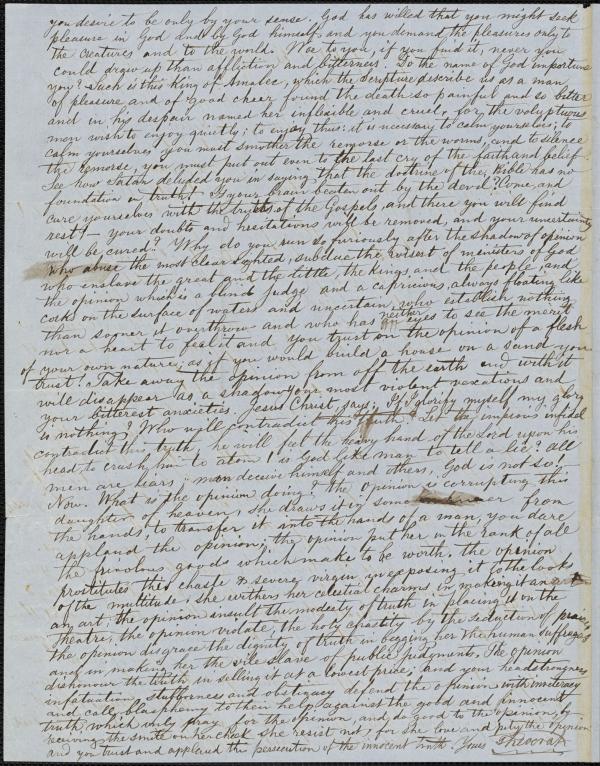 you desire to be only by your sense. God has willed that you might seek
pleasure in God and by God himself, and you demand the pleasures only to
the creatures and to the world. Woe to you, if you find it, never you
could draw up than affliction and bitterness. Do the name of God importune
you? Such is this King of Amalec, which the Scripture describe us as a man
of pleasure and of good cheer found the death so painful and so bitter
and in his despair named her inflexible and cruel, for the voluptuous
men wish to enjoy quietly; to enjoy thus: it is necessary to calm yourselves; to
calm yourselves you must smother the remorse or the worms, and to silence
the remorse, you must put out even to the last cry of the faith and belief.
See how Satan deluded you in saying that the doctrine of the Bible has no
foundation in truth! Is your brain beaten out by the devil? Come and
cure yourselves with the truths of the Gospels, and there you will find
rest! — your doubts and hesitations will be removed, and your uncertainty
will be cured? Why do you run so furiously after the shadow of opinion
who abuse the most clear sighted, subdue the wisest of ministers of God
who enslave the great and the little, the Kings, and the people, and
the opinion which is a blind judge and a capricious, always floating like
corks on the surface of waters and uncertain, who establish nothing
than sooner it overthrow and who has neither eyes to see the merit
nor a heart to feel it and you trust on the opinion of a flesh
of your own nature, as if you would build a house on a sand you
trust! Take away the opinion from off the earth and with it
will disappear as a shadow your most violent vexations and
your bitterest anxieties. Jesus Christ says; If I glorify myself my glory
is nothing? Who will contradict this truth? Let the impious infidel
contradict this truth he will feel the heavy hand of the Lord upon his
head to crush him to atom! is God like man to tell a lie? All
men are liars, man deceive himself and others, God is not so!
Now. What is the opinion doing? the opinion corrupting this
daughter of heaven, she draws it in some manner from
the hands, to transfer it into the hands of a man, you dare
applaud the opinion; the opinion put her in the rank of all
the frivolous goods which make to be worth. the opinion
prostitutes this chaste & severe virgin in exposing it to the looks
of the multitude she withers her celestial charms in making it an art
an art. the opinion insult the modesty of truth in placing it on the
Theatre; the opinion violate, the holy chastity by the seduction of praises
the opinion disgrace the dignity of truth in begging her the human suffrages
and in making her the vile slave of public judgments, The opinion
dishonour the truth in selling it at a lowest price; and your headstrongness
infatuation, stubborness and obstinacy defend the opinion
and call blasphemy to their help against the good and innocent
truth which only pray for the opinion, and do good to the opinion, by
receiving the smite on her cheek she resist not, for she love and pity the opinion
and you trust and applaud the persecution of the innocent truth. Yours